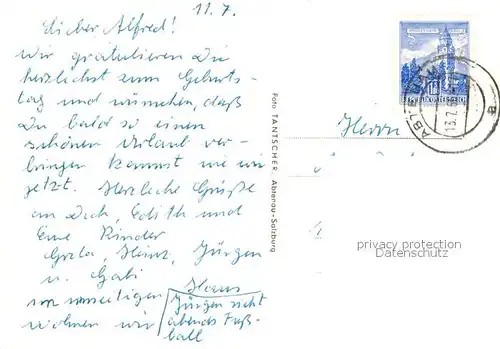 11.7.
Lieber Alfred!
Wir gratulieren Dir
herzlichst zum Geburts-
tag und wünschen, daß
Du bald so einen
schönen Urlaub ver-
bringen kannst wie wir
jetzt. Herzliche Grüße
an Dich, Edith und
Eure Kinder
Greta, Heinz, Jürgen
u. Gabi
im umseitigen Haus
wohnen wir
Jürgen sieht
abends Fuß-
ball
Foto TANTSCHER, Abtenau-Salzburg
Herrn
privacy protection
Datenschutz